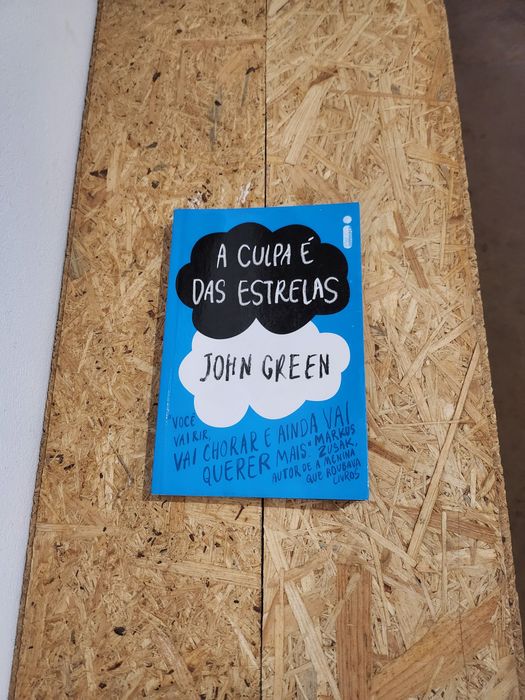 A CULPA É
DAS ESTRELAS
JOHN GREEN
"VOCÊ
VAI RIR,
VAI CHORAR E AINDA VAI
QUERER MAIS." MARKUS
ZUSAK,
AUTOR DE A MENINA
QUE ROUBAVA
LIVROS